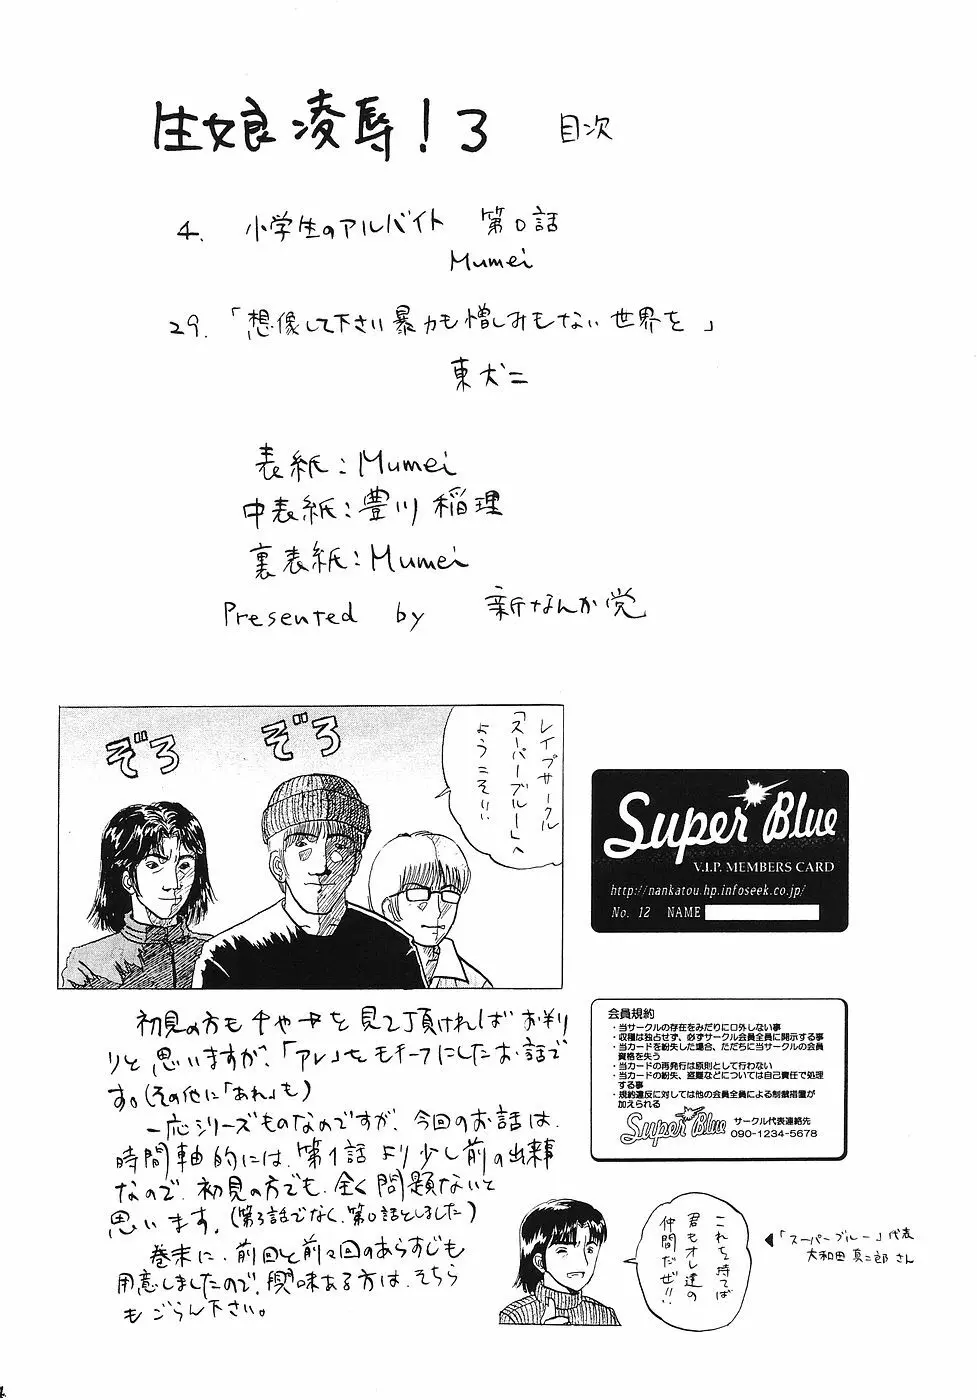 生娘凌辱!3 目次
4. 小学生のアルバイト 第0話
Mumei
29.「想像して下さい暴力も憎しみもない世界を」
東犬二
表紙:Mumei
中表紙:豊川稲理
裏表紙:Mumei
Presented by 新なんか党
レイプサークル
「スーパーブルー」へ
ようこそ!!
ぞろ
ぞろ
Super Blue
V.I.P. MEMBERS CARD
http://nankatou.hp.infoseek.co.jp/
No. 12 NAME
会員規約
・当サークルの存在をみだりに口外しない事
・収穫は独占せず、必ずサークル会員全員に開示する事
・当カードを紛失した場合、ただちに当サークルの会員
資格を失う
・当カードの再発行は原則として行わない
・当カードの紛失、盗難などについては自己責任で処理
する事
・規約違反に対しては他の会員全員による制裁措置が
加えられる
Super Blue
サークル代表連絡先
090-1234-5678
初見の方もチャートを見て頂ければお判
りと思いますが、「アレ」をモチーフにしたお話で
す。(その他に「あれ」も)
一応シリーズものなのですが、今回のお話は、
時間軸的には、第1話より少し前の出来事
なので、初見の方でも、全く問題ないと
思います。(第3話でなく、第0話としました)
巻末に、前回と前々回のあらすじも
用意しましたので、興味ある方は、そちら
もごらん下さい。
これを持てば
君もオレ達の
仲間だぜ!!
◀「スーパーブルー」代表
大和田真二郎さん